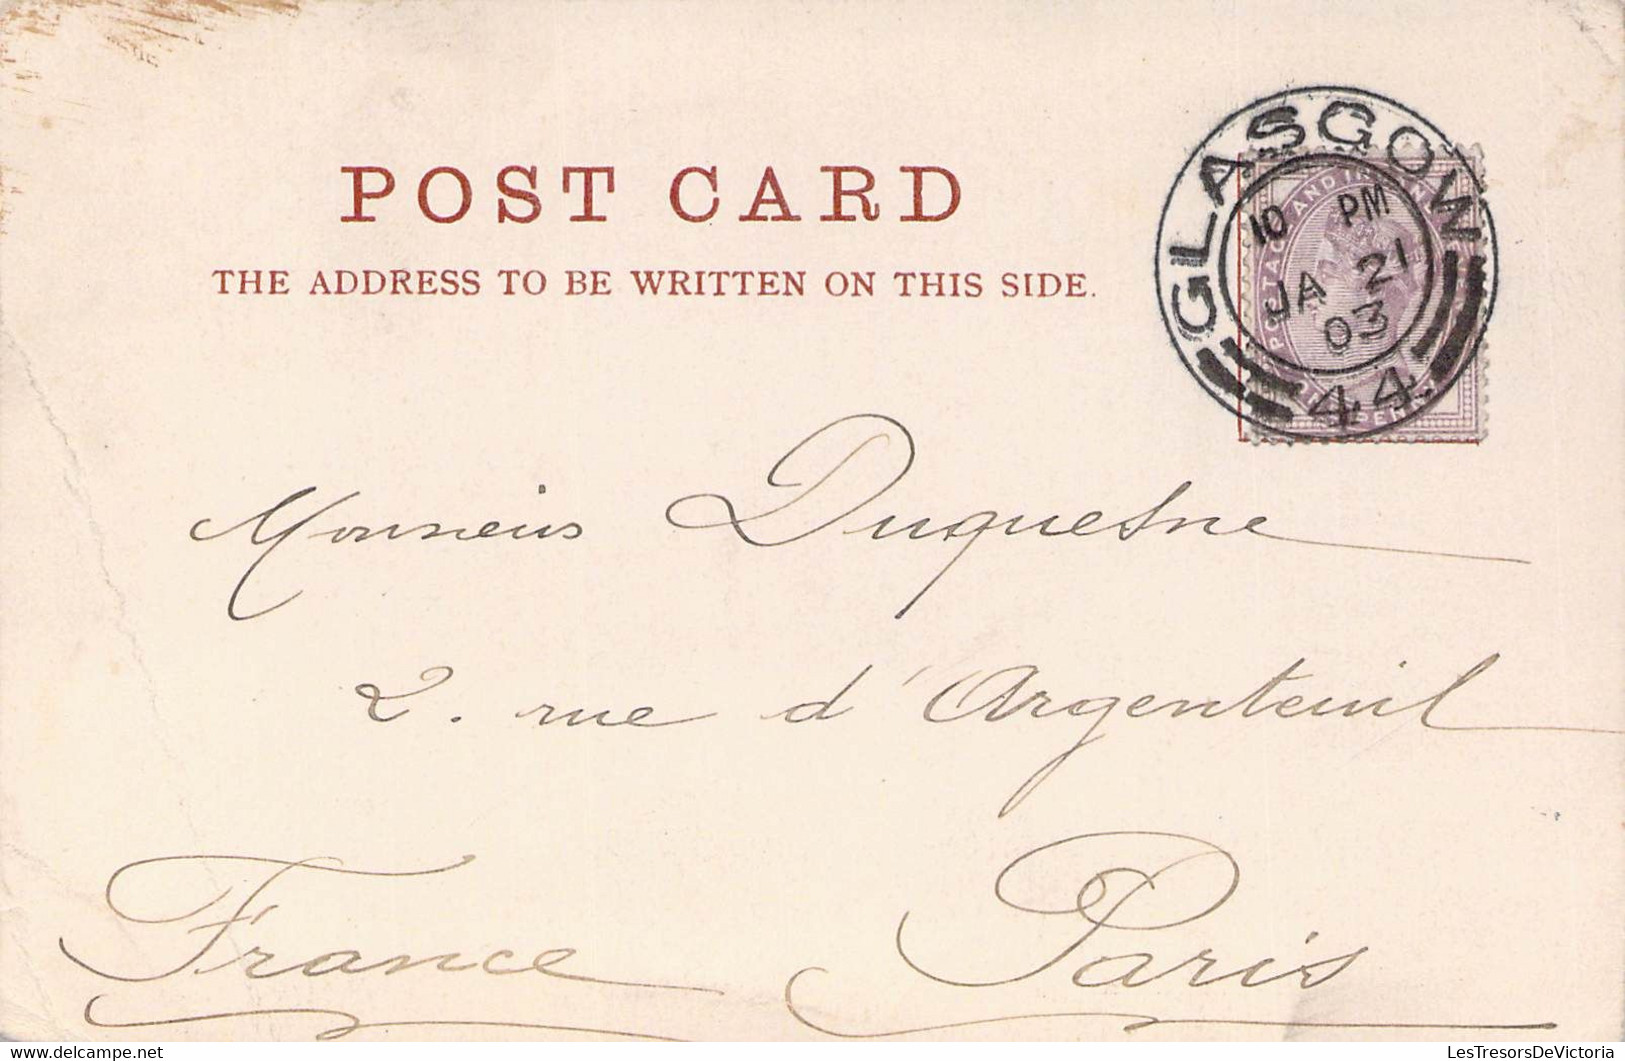 POST CARD
THE ADDRESS TO BE WRITTEN ON THIS SIDE.
GLASGOW
10 PM
JA 21
03
44
POSTAGE AND INLAND
ONE PENNY
Monsieur Duquesne
2. rue d'Argenteuil
Paris
France
LesTresorsDeVictoria